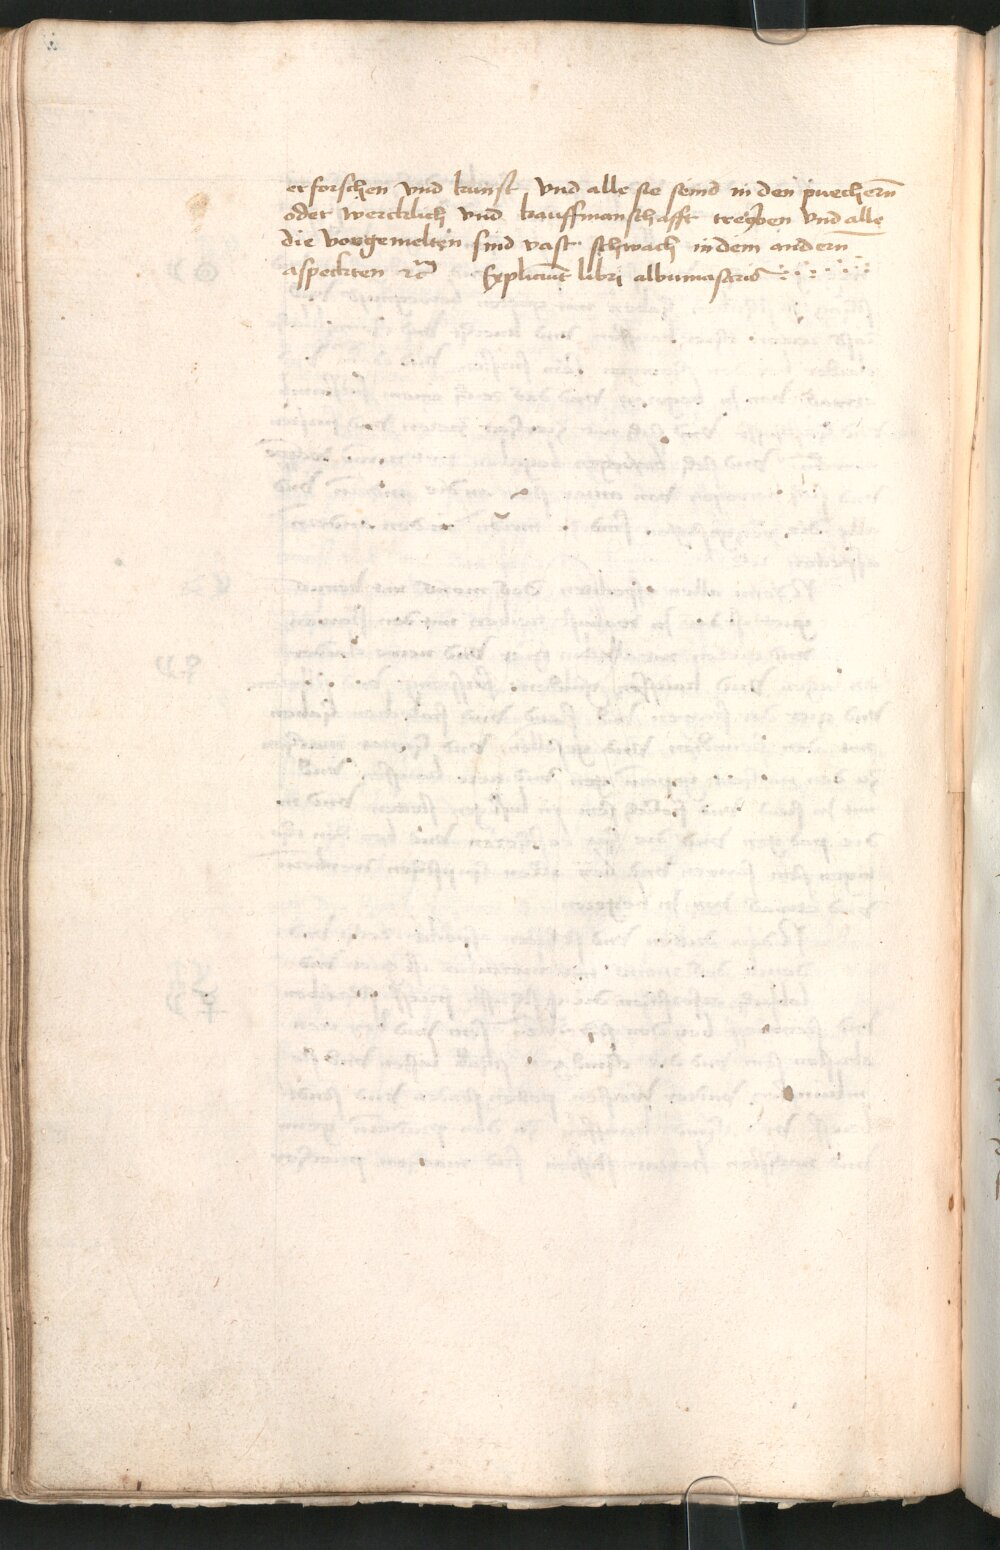 erforschen vnd kunst vnd alle sie seind in den puechern̄
oder wercklich vnd kauffmanschafft treyben vnd alle
die vorgemelten sind vast schwach in dem andern̄
aspeckten ⁊c̄ Expliciūt libri albumasaris